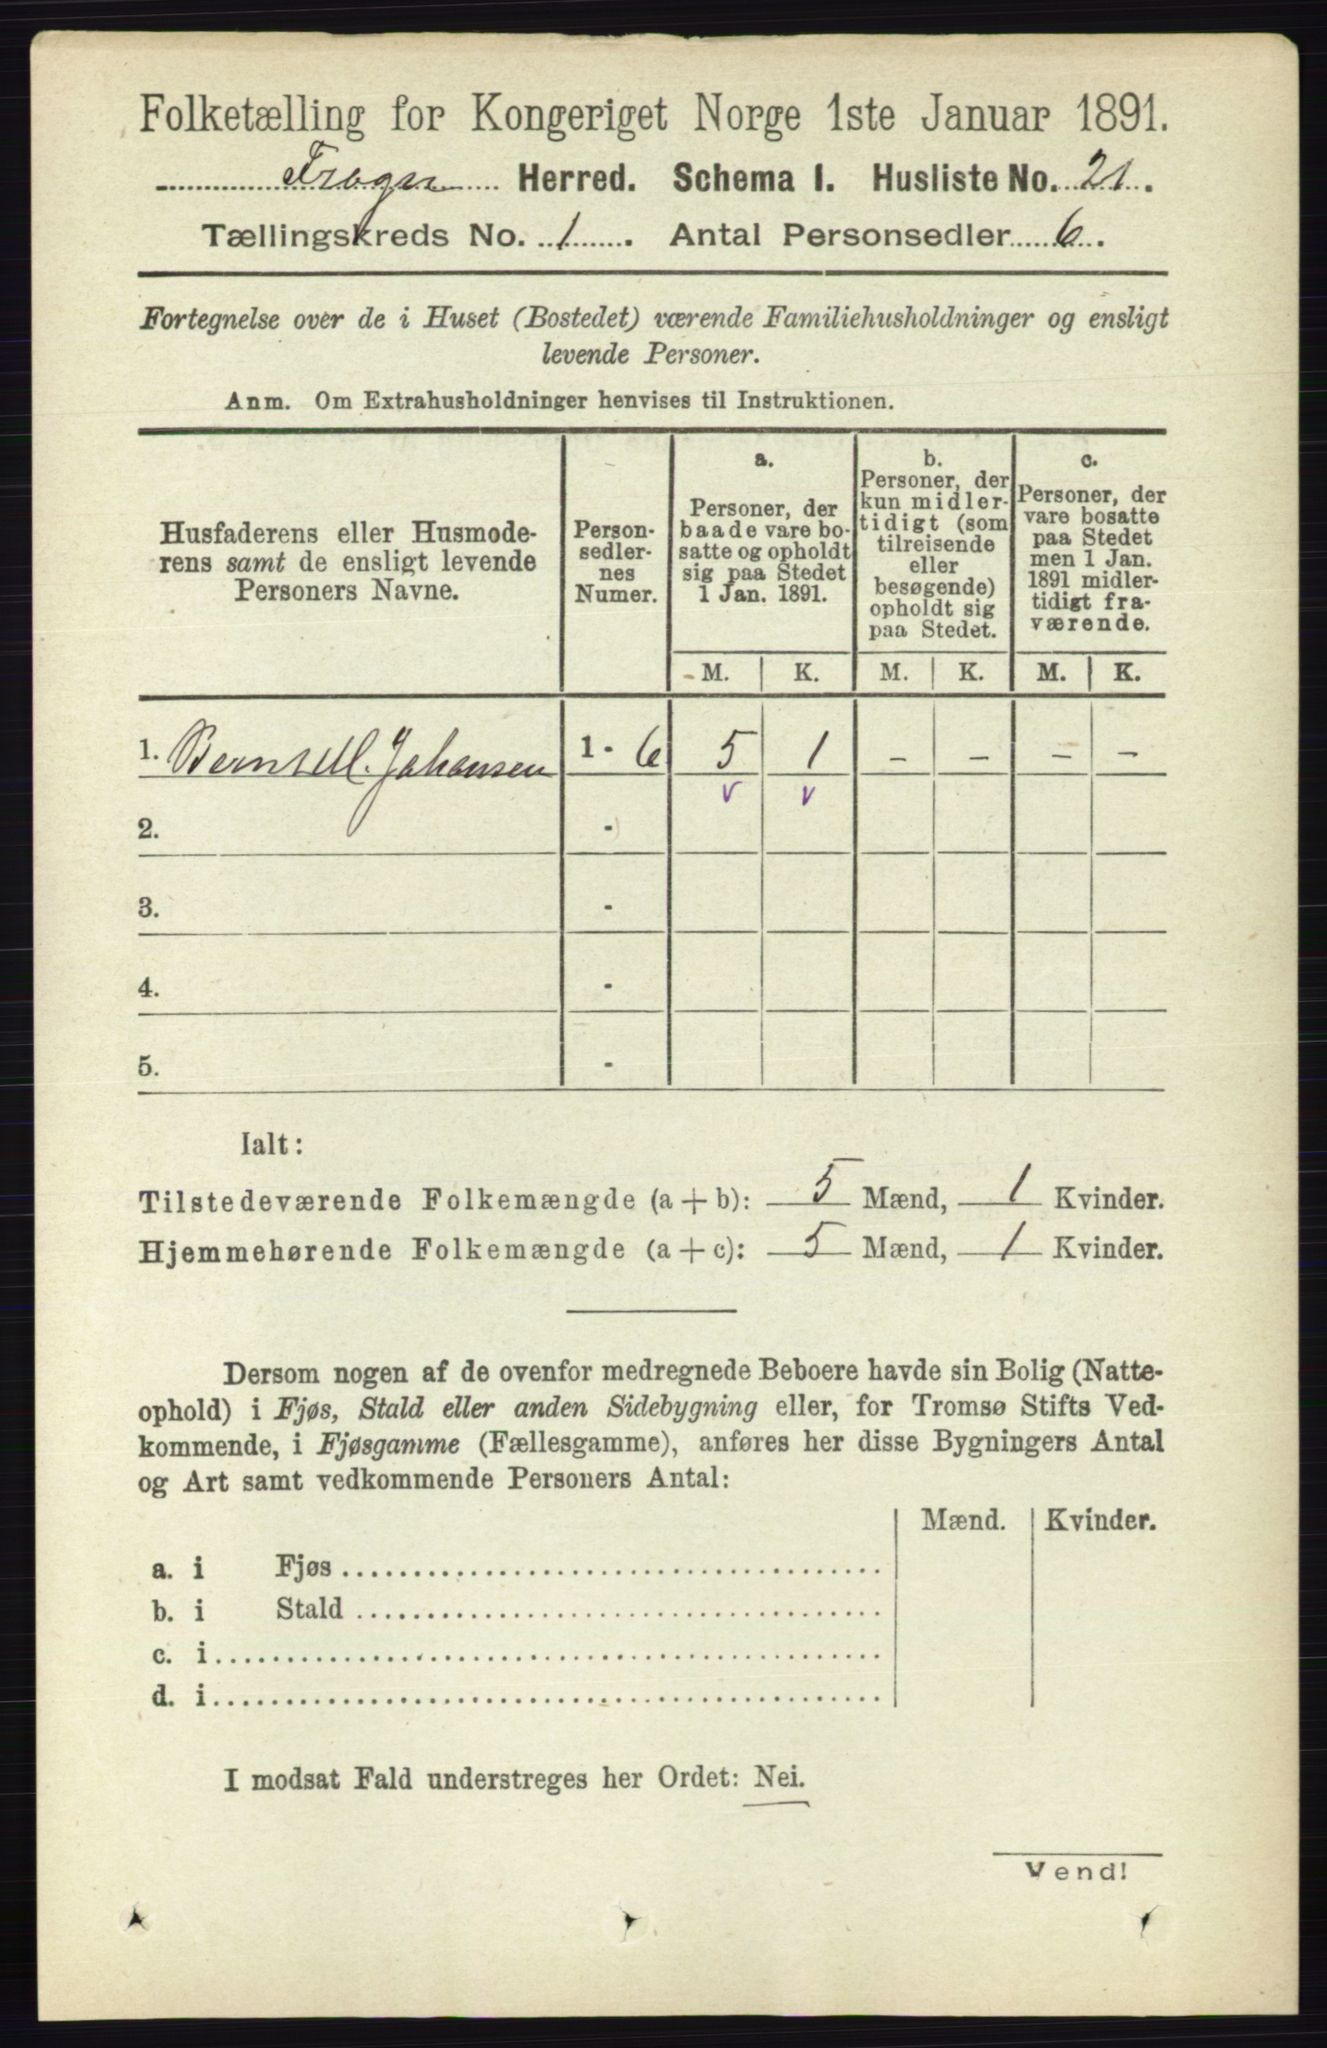 Folketælling for Kongeriget Norge 1ste Januar 1891.
Frogn Herred. Schema I. Husliste No. 21.
Tællingskreds No. 1. Antal Personsedler 6.
Fortegnelse over de i Huset (Bostedet) værende Familiehusholdninger og ensligt
levende Personer.
Anm. Om Extrahusholdninger henvises til Instruktionen.
Husfaderens eller Husmode-
rens samt de ensligt levende
Personers Navne.
Person-
sedler-
nes
Numer.
a.
Personer, der
baade vare bo-
satte og opholdt
sig paa Stedet
1 Jan. 1891.
b.
Personer, der
kun midler-
tidigt (som
tilreisende
eller
besøgende)
opholdt sig
paa Stedet.
c.
Personer, der
vare bosatte
paa Stedet
men 1 Jan.
1891 midler-
tidigt fra-
værende.
M. K. M. K. M. K.
1. Bernt M. Johansen 1 - 6 5 1 - - - -
v v
2. -
3. -
4. -
5. -
Ialt:
Tilstedeværende Folkemængde (a + b): 5 Mænd, 1 Kvinder.
Hjemmehørende Folkemængde (a + c): 5 Mænd, 1 Kvinder.
Dersom nogen af de ovenfor medregnede Beboere havde sin Bolig (Natte-
ophold) i Fjøs, Stald eller anden Sidebygning eller, for Tromsø Stifts Ved-
kommende, i Fjøsgamme (Fællesgamme), anføres her disse Bygningers Antal
og Art samt vedkommende Personers Antal:
Mænd. Kvinder.
a. i Fjøs
b. i Stald
c. i
d. i
I modsat Fald understreges her Ordet: Nei.
Vend!